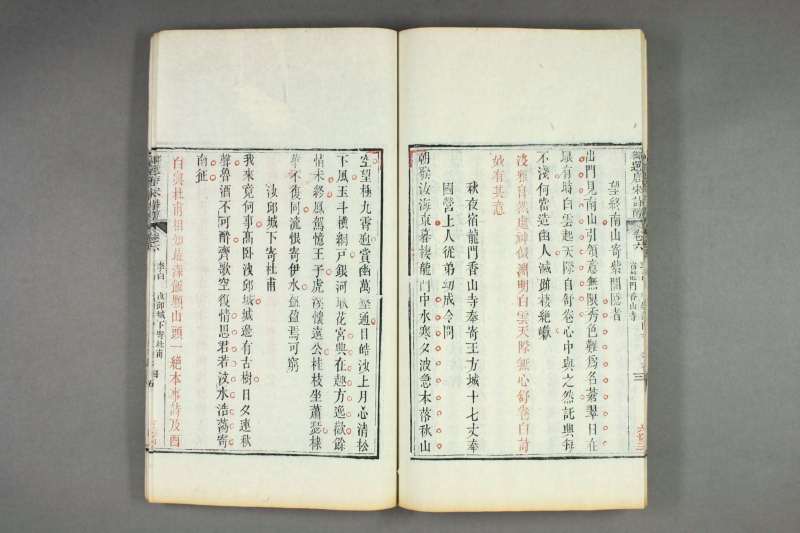 望終南山寄紫閣隱者
出門見南山引領意無限秀色難爲名蒼翠日在
眼有時白雲起天際自舒卷心中與之然託興每
不淺何當造幽人滅跡棲絕巘
淡雅自然處神似淵明白雲天際無心舒卷白詩
妙有其意
秋夜宿龍門香山寺奉寄王方城十七丈奉
國瑩上人從弟幼成令問
朝發汝海東暮棲龍門中水寒夕波急木落秋山
空望極九霄迥賞幽萬壑通目皓沙上月心清松
下風玉斗橫網戶銀河耿花宮興在趣方逸歡餘
情未終鳳駕憶王子虎溪懷遠公桂枝坐蕭瑟棣
華不復同流恨寄伊水盈盈焉可窮
沙邱城下寄杜甫
我來竟何事高臥沙邱城城邊有古樹日夕連秋
聲魯酒不可醉齊歌空復情思君若汶水浩蕩寄
南征
白與杜甫相知最深飯顆山頭一絕本事詩及酉
李白
沙邱城下寄杜甫
宿龍門香山寺
三